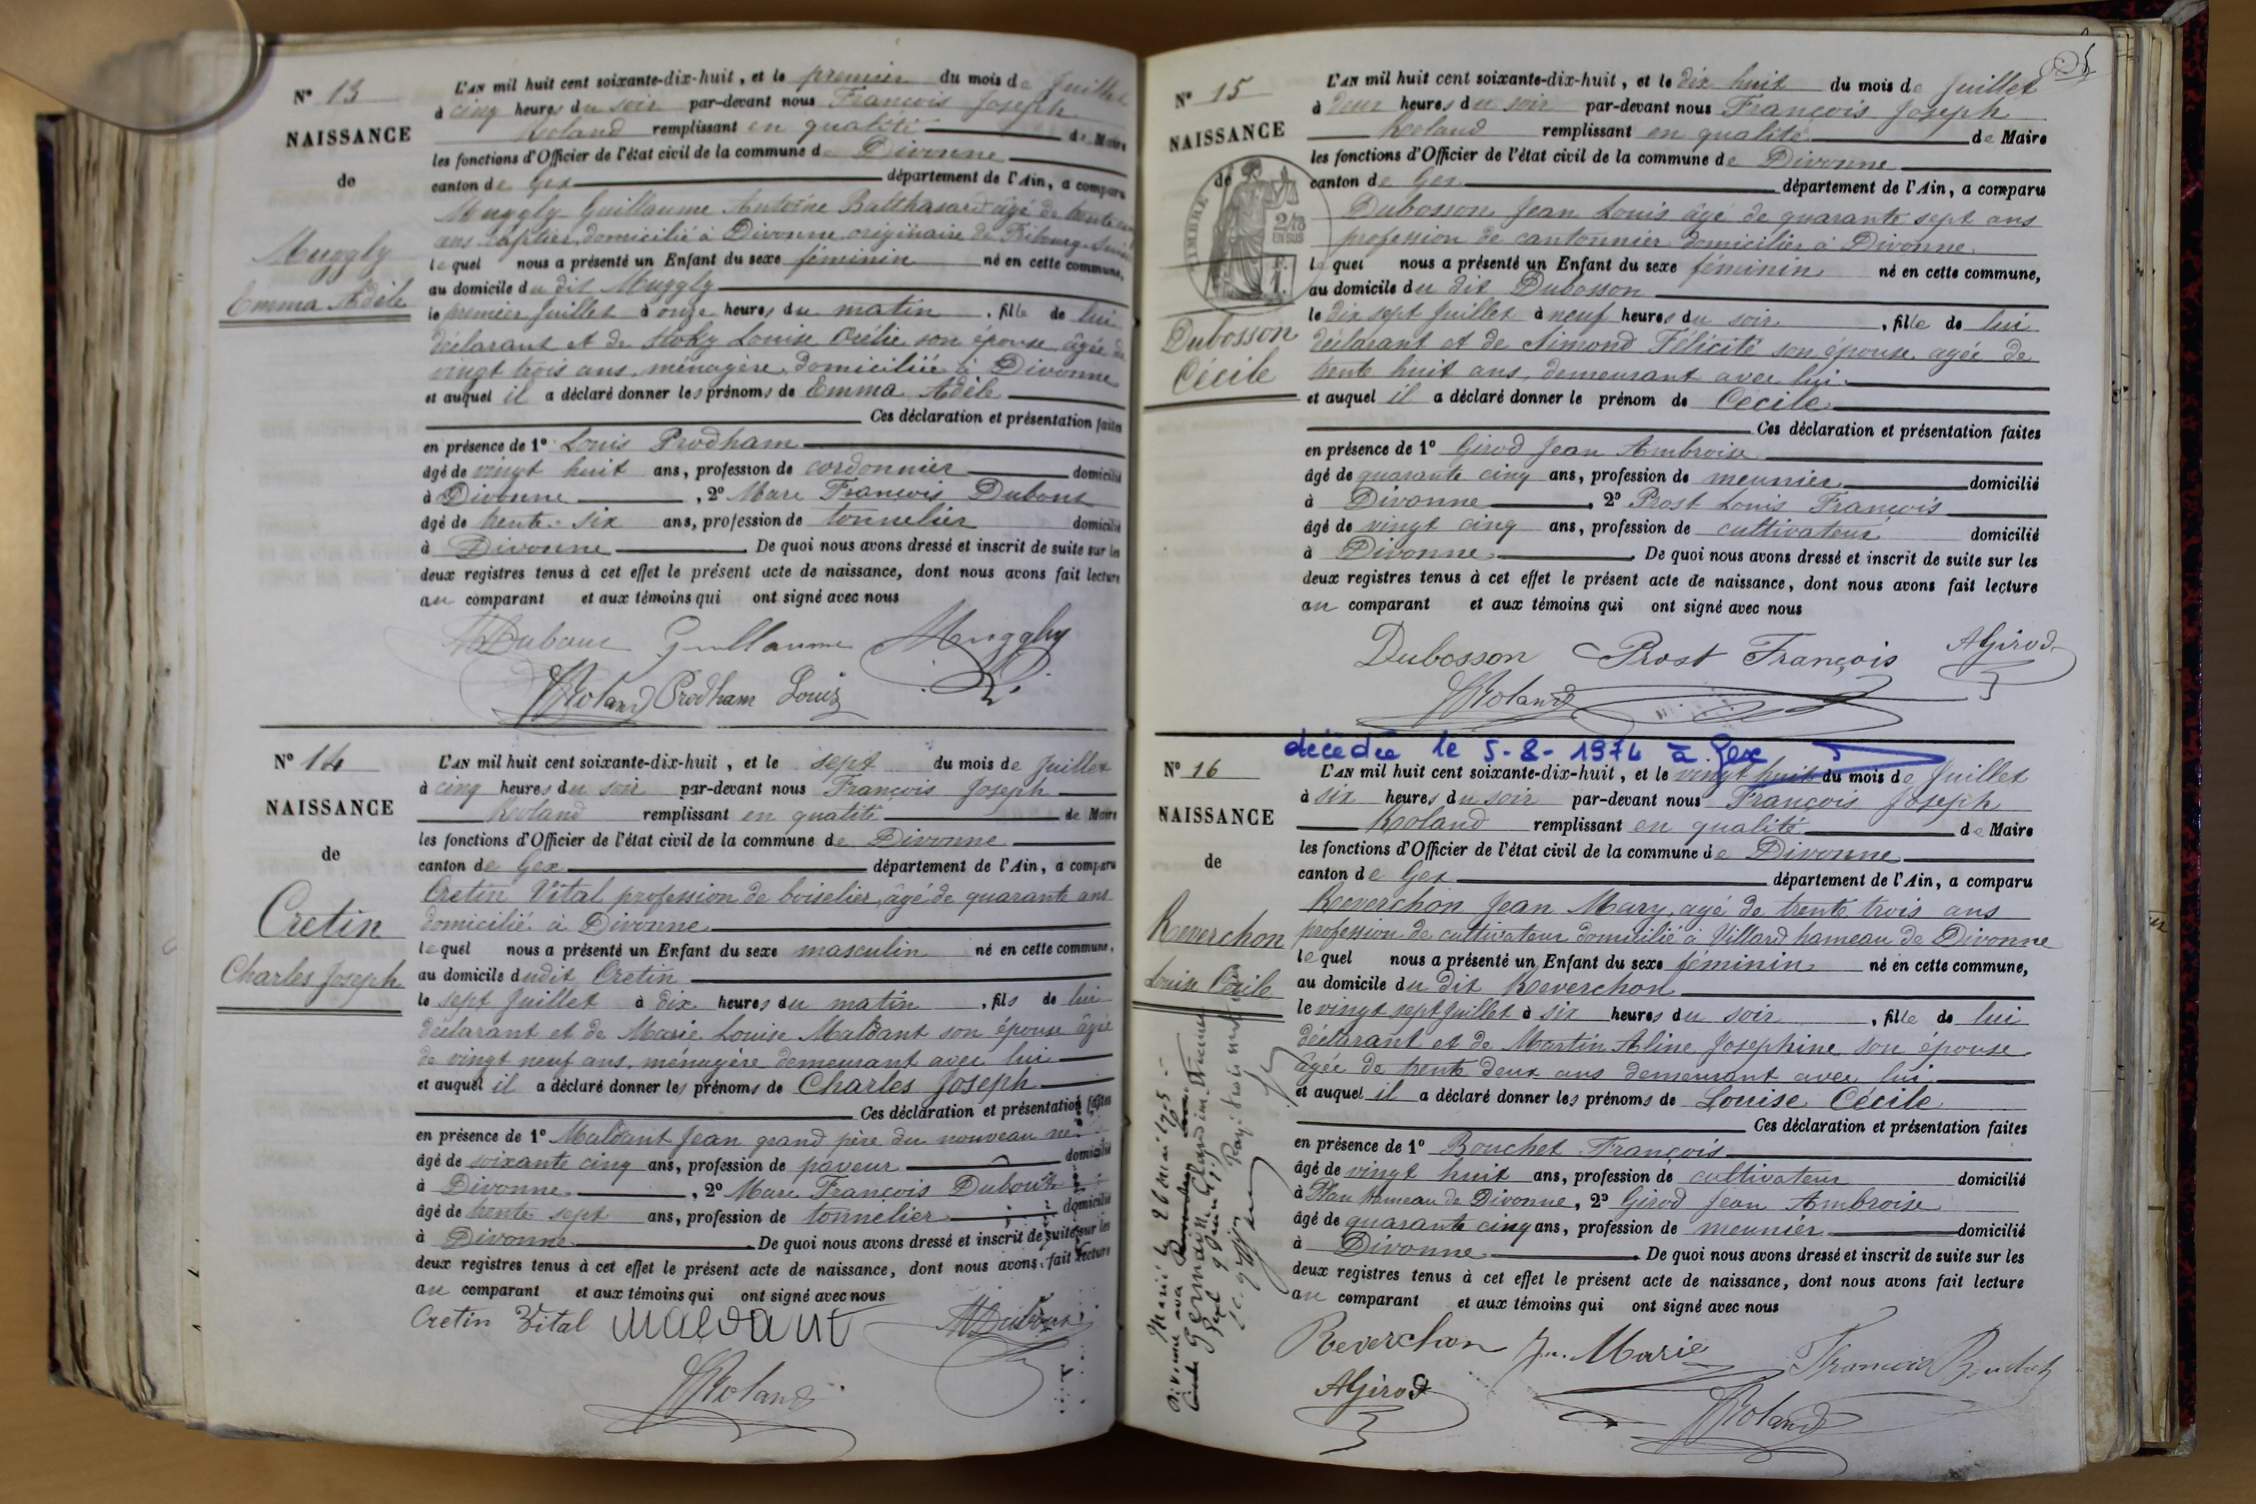 N° 13
NAISSANCE
de
Muggly
Emma Adèle
L'AN mil huit cent soixante-dix-huit, et le premier du mois de Juillet
à cinq heures du soir par-devant nous François Joseph
Roland remplissant en qualité de Maire
les fonctions d'Officier de l'état civil de la commune de Divonne
canton de Gex département de l'Ain, a comparu
Muggly Guillaume Antoine Balthasard âgé de trente
ans domicilié à Divonne originaire de Fribourg
lequel nous a présenté un Enfant du sexe féminin né en cette commune,
au domicile du dit Muggly
le premier Juillet à onze heures du matin, fille de lui
déclarant et de Louise son épouse âgée de
vingt trois ans, ménagère, domiciliée à Divonne
et auquel il a déclaré donner les prénoms de Emma Adèle
Ces déclaration et présentation faites
en présence de 1° Louis Prodham
âgé de vingt huit ans, profession de cordonnier domicilié
à Divonne, 2° Marc François Dubout
âgé de trente-six ans, profession de tonnelier domicilié
à Divonne. De quoi nous avons dressé et inscrit de suite sur les
deux registres tenus à cet effet le présent acte de naissance, dont nous avons fait lecture
au comparant et aux témoins qui ont signé avec nous
Guillaume Muggly
Roland Prodham Louis
N° 14
NAISSANCE
de
Cretin
Charles Joseph
L'AN mil huit cent soixante-dix-huit, et le sept du mois de Juillet
à cinq heures du soir par-devant nous François Joseph
Roland remplissant en qualité de Maire
les fonctions d'Officier de l'état civil de la commune de Divonne
canton de Gex département de l'Ain, a comparu
Cretin Vital profession de boiselier, âgé de quarante ans
domicilié à Divonne
lequel nous a présenté un Enfant du sexe masculin né en cette commune,
au domicile dudit Cretin
le sept Juillet à dix heures du matin, fils de lui
déclarant et de Marie Louise Maldant son épouse âgée
de vingt neuf ans, ménagère demeurant avec lui
et auquel il a déclaré donner les prénoms de Charles Joseph
Ces déclaration et présentation faites
en présence de 1° Maldant Jean grand père du nouveau né
âgé de soixante cinq ans, profession de paveur domicilié
à Divonne, 2° Marc François Dubout
âgé de trente sept ans, profession de tonnelier domicilié
à Divonne. De quoi nous avons dressé et inscrit de suite sur les
deux registres tenus à cet effet le présent acte de naissance, dont nous avons fait lecture
au comparant et aux témoins qui ont signé avec nous
Cretin Vital Maldant
Roland
N° 15
NAISSANCE
de
TIMBRE
Dubosson
Cécile
L'AN mil huit cent soixante-dix-huit, et le dix huit du mois de Juillet
à deux heures du soir par-devant nous François Joseph
Roland remplissant en qualité de Maire
les fonctions d'Officier de l'état civil de la commune de Divonne
canton de Gex département de l'Ain, a comparu
Dubosson Jean Louis âgé de quarante sept ans
profession de cantonnier domicilier à Divonne
lequel nous a présenté un Enfant du sexe féminin né en cette commune,
au domicile du dit Dubosson
le dix sept Juillet à neuf heures du soir, fille de lui
déclarant et de Simond Félicité son épouse, agée de
trente huit ans, demeurant avec lui
et auquel il a déclaré donner le prénom de Cécile
Ces déclaration et présentation faites
en présence de 1° Girod Jean Ambroise
âgé de quarante cinq ans, profession de meunier domicilié
à Divonne, 2° Prost Louis François
âgé de vingt cinq ans, profession de cultivateur domicilié
à Divonne. De quoi nous avons dressé et inscrit de suite sur les
deux registres tenus à cet effet le présent acte de naissance, dont nous avons fait lecture
au comparant et aux témoins qui ont signé avec nous
Dubosson Prost François AGirod
Roland
décédée le 5-8-1974 à Gex
N° 16
NAISSANCE
de
Reverchon
Louise Cécile
L'AN mil huit cent soixante-dix-huit, et le vingt huit du mois de Juillet
à six heures du soir par-devant nous François Joseph
Roland remplissant en qualité de Maire
les fonctions d'Officier de l'état civil de la commune de Divonne
canton de Gex département de l'Ain, a comparu
Reverchon Jean Mary, agé de trente trois ans
profession de cultivateur domicilié à Villard hameau de Divonne
lequel nous a présenté un Enfant du sexe féminin né en cette commune,
au domicile du dit Reverchon
le vingt sept Juillet à six heures du soir, fille de lui
déclarant et de Martin Aline Josephine son épouse
âgée de trente deux ans demeurant avec lui
et auquel il a déclaré donner les prénoms de Louise Cécile
Ces déclaration et présentation faites
en présence de 1° Bouchet François
âgé de vingt huit ans, profession de cultivateur domicilié
à Plan hameau de Divonne, 2° Girod Jean Ambroise
âgé de quarante cinq ans, profession de meunier domicilié
à Divonne. De quoi nous avons dressé et inscrit de suite sur les
deux registres tenus à cet effet le présent acte de naissance, dont nous avons fait lecture
au comparant et aux témoins qui ont signé avec nous
Reverchon Jn. Marie François
AGirod Roland